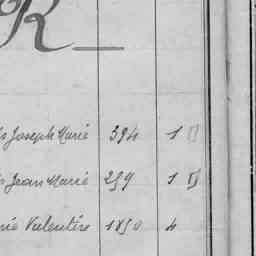 R
Joseph Marie 394 1
Jean Marie 259 1
Valentine 1850 4